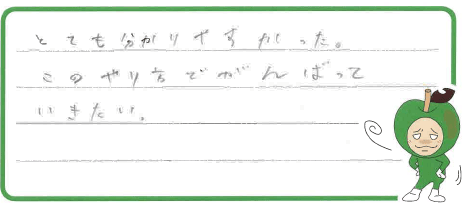 とても分かりやすかった。
このやり方でがんばって
いきたい。